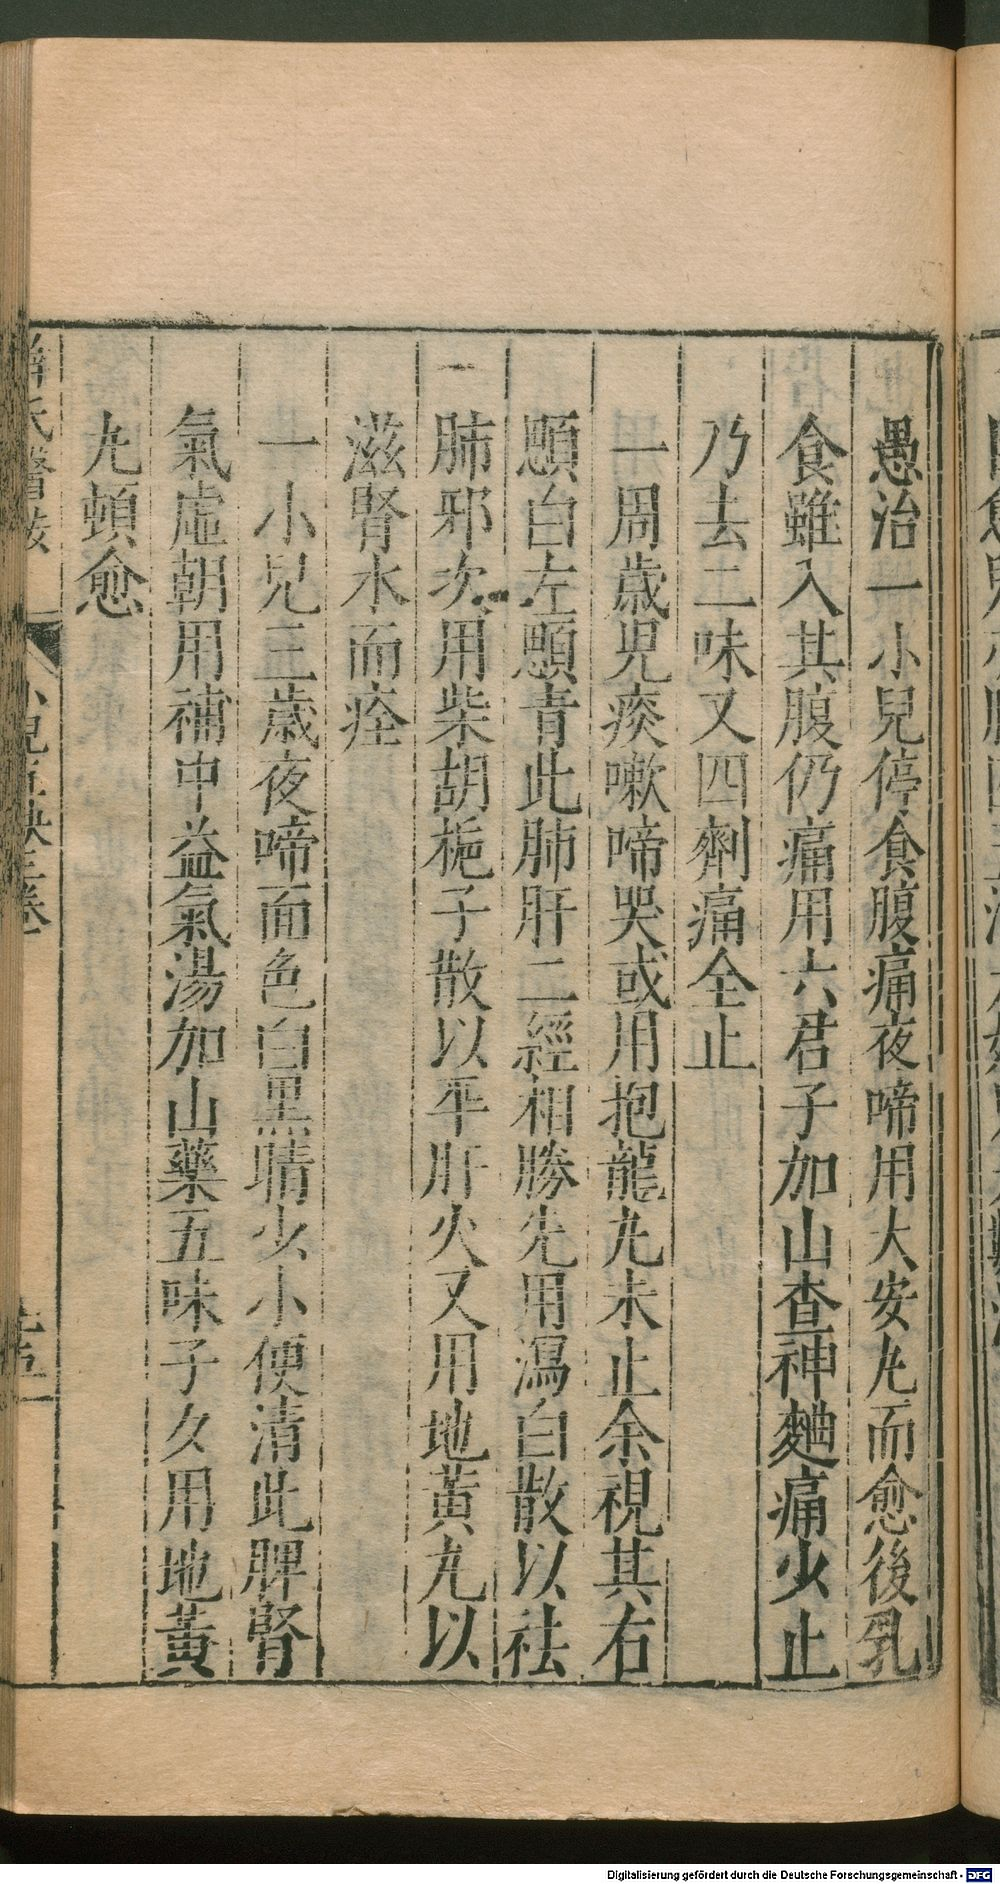 愚治一小兒停食腹痛夜啼用大安丸而愈後乳
食雖入其腹仍痛用六君子加山查神麯痛少止
乃去二味又四劑痛全止
一周歲児痰嗽啼哭或用抱龍丸未止余視其右
顋白左顋青此肺肝二經相勝先用瀉白散以祛
肺邪次用柴胡梔子散以平肝火又用地黃丸以
滋腎水而痊
一小兒三歲夜啼面色白黑睛少小便清此脾腎
氣虛朝用補中益氣湯加山藥五味子夕用地黃
丸頓愈
小兒直訣三卷
Digitalisierung gefördert durch die Deutsche Forschungsgemeinschaft - DFG